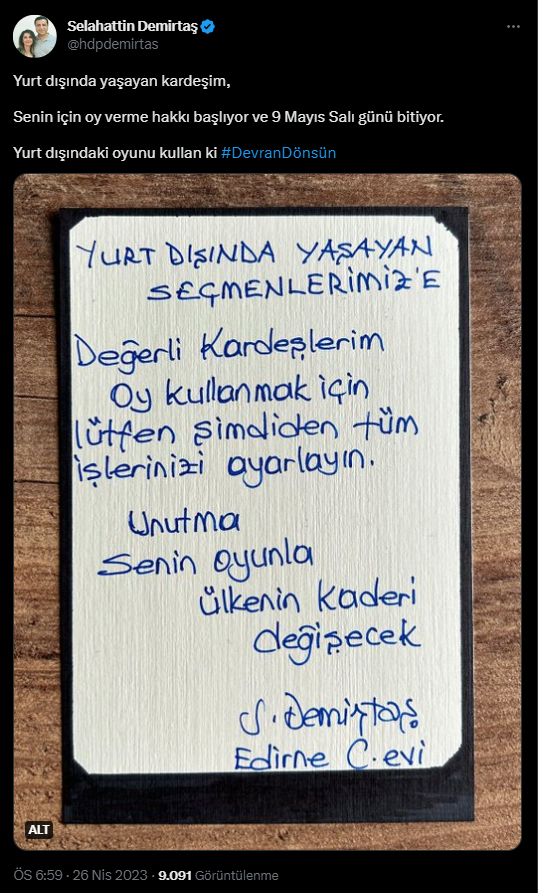 Selahattin Demirtaş
@hdpdemirtas
Yurt dışında yaşayan kardeşim,
Senin için oy verme hakkı başlıyor ve 9 Mayıs Salı günü bitiyor.
Yurt dışındaki oyunu kullan ki #DevranDönsün
YURT DIŞINDA YAŞAYAN
SEÇMENLERİMİZ'E
Değerli Kardeşlerim
Oy kullanmak için
lütfen şimdiden tüm
işlerinizi ayarlayın.
Unutma
Senin oyunla
ülkenin kaderi
değişecek
S. Demirtaş
Edirne C.evi
ALT
ÖS 6:59 · 26 Nis 2023 · 9.091 Görüntülenme